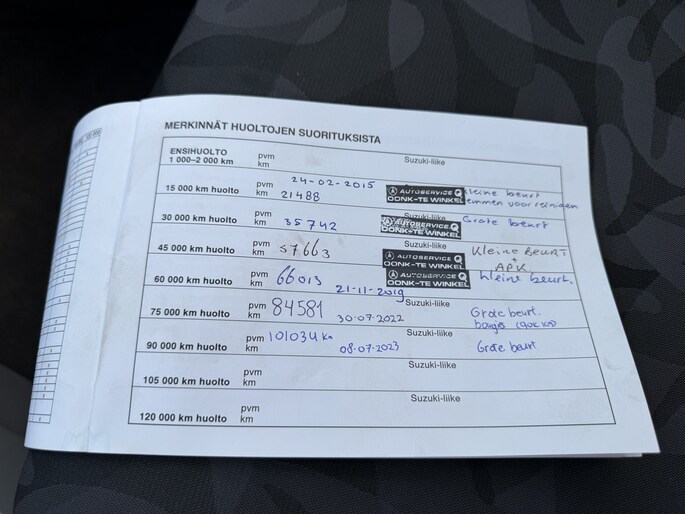 MERKINNÄT HUOLTOJEN SUORITUKSISTA
ENSIHUOLTO
1 000–2 000 km
pvm
km
Suzuki-liike
15 000 km huolto
pvm 24-02-2015
km 21488
AUTOSERVICE Q
OONK-TE WINKEL
kleine beurt
remmen voor reinigen
30 000 km huolto
pvm
km 35742
Suzuki-liike
AUTOSERVICE Q
OONK-TE WINKEL
Grote beurt
45 000 km huolto
pvm
km 57663
Suzuki-liike
AUTOSERVICE Q
OONK-TE WINKEL
Kleine Beurt
+
APK
60 000 km huolto
pvm
km 66013
21-11-2019
AUTOSERVICE Q
OONK-TE WINKEL
kleine beurt.
75 000 km huolto
pvm
km 84581
30-07-2022
Suzuki-liike
Grote beurt.
90 000 km huolto
pvm
km 101034 km
08-07-2023
Suzuki-liike
Grote beurt
105 000 km huolto
pvm
km
Suzuki-liike
120 000 km huolto
pvm
km
Suzuki-liike